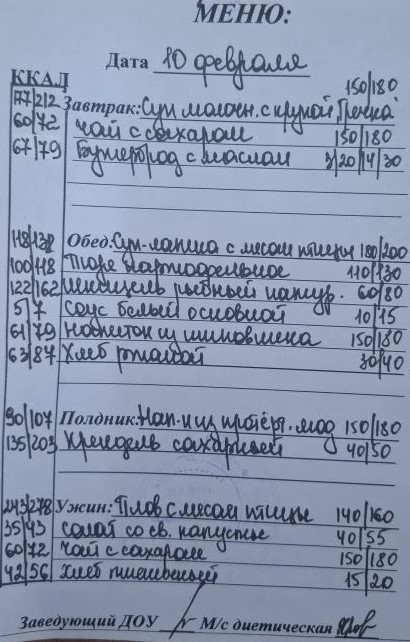 МЕНЮ:
Дата 10 февраля
ККАЛ 150/180
77/212 Завтрак: Суп молочн. с крупой Гречка
60/72 Чай с сахаром 150/180
67/79 Бутерброд с маслом 3/20/4/30
118/138 Обед: Суп-лапша с мясом птицы 180/200
100/118 Пюре картофельное 110/130
122/162 Шницель рыбный натур. 60/80
5/7 Соус белый основной 10/15
61/79 Напиток из шиповника 150/180
63/87 Хлеб ржаной 30/40
90/107 Полдник: Нап-к из протёрт. ягод 150/180
135/203 Крендель сахарный 40/50
243/278 Ужин: Плов с мясом птицы 140/160
35/43 салат со св. капусты 40/55
60/72 Чай с сахаром 150/180
42/56 Хлеб пшеничный 15/20
Заведующий ДОУ М/с диетическая